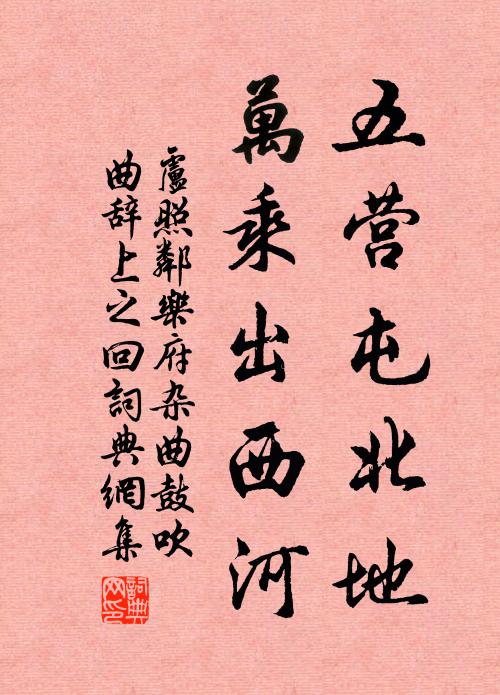 五营屯北地
萬乘出西河
盧照鄰樂府杂曲鼓吹
曲辞上之回詞典網集
詞典网印